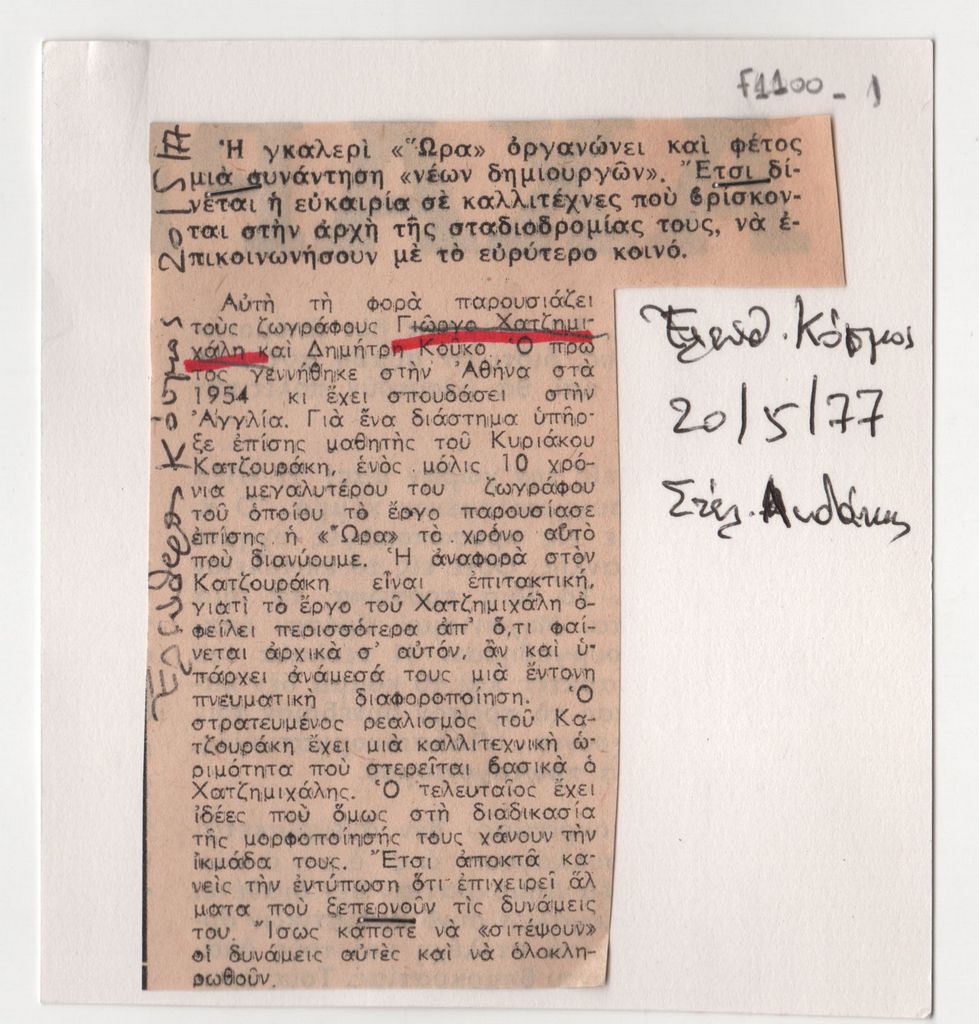 F1100-1
Ἡ γκαλερὶ «Ὥρα» ὀργανώνει καὶ φέτος
μιὰ συνάντηση «νέων δημιουργῶν». Ἔτσι δί-
νεται ἡ εὐκαιρία σὲ καλλιτέχνες ποὺ βρίσκον-
ται στὴν ἀρχὴ τῆς σταδιοδρομίας τους, νὰ ἐ-
πικοινωνήσουν μὲ τὸ εὐρύτερο κοινό.
Αὐτὴ τὴ φορὰ παρουσιάζει
τοὺς ζωγράφους Γιῶργο Χατζημι-
χάλη καὶ Δημήτρη Κοῦκο. Ὁ πρῶ
τος γεννήθηκε στὴν Ἀθήνα στὰ
1954 κι ἔχει σπουδάσει στὴν
Ἀγγλία. Γιὰ ἕνα διάστημα ὑπῆρ-
ξε ἐπίσης μαθητὴς τοῦ Κυριάκου
Κατζουράκη, ἑνὸς μόλις 10 χρό-
νια μεγαλυτέρου του ζωγράφου
τοῦ ὁποίου τὸ ἔργο παρουσίασε
ἐπίσης ἡ «Ὥρα» τὸ χρόνο αὐτὸ
ποὺ διανύουμε. Ἡ ἀναφορὰ στὸν
Κατζουράκη εἶναι ἐπιτακτική,
γιατὶ τὸ ἔργο τοῦ Χατζημιχάλη ὀ-
φείλει περισσότερα ἀπ' ὅ,τι φαί-
νεται ἀρχικὰ σ' αὐτόν, ἂν καὶ ὑ-
πάρχει ἀνάμεσά τους μιὰ ἔντονη
πνευματικὴ διαφοροποίηση. Ὁ
στρατευμένος ρεαλισμὸς τοῦ Κα-
τζουράκη ἔχει μιὰ καλλιτεχνικὴ ὡ-
ριμότητα ποὺ στερεῖται βασικὰ ὁ
Χατζημιχάλης. Ὁ τελευταῖος ἔχει
ἰδέες ποὺ ὅμως στὴ διαδικασία
τῆς μορφοποίησής τους χάνουν τὴν
ἰκμάδα τους. Ἔτσι ἀποκτᾶ κα-
νεὶς τὴν ἐντύπωση ὅτι ἐπιχειρεῖ ἅλ
ματα ποὺ ξεπερνοῦν τὶς δυνάμεις
του. Ἴσως κάποτε νὰ «σιτέψουν»
οἱ δυνάμεις αὐτὲς καὶ νὰ ὁλοκλη-
ρωθοῦν.
Ἐλεύθερος Κόσμος 20/5/77
Ἐλευθ. Κόσμος
20/5/77
Στέλ. Λυδάκης